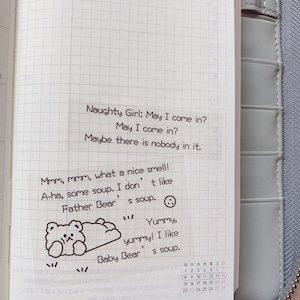 Naughty Girl: May I come in?
May I come in?
Maybe there is nobody in it.
Mmm, mmm, what a nice smell!
A-ha, some soup. I don't like
Father Bear's soup.
Yummy,
yummy! I like
Baby Bear's soup.